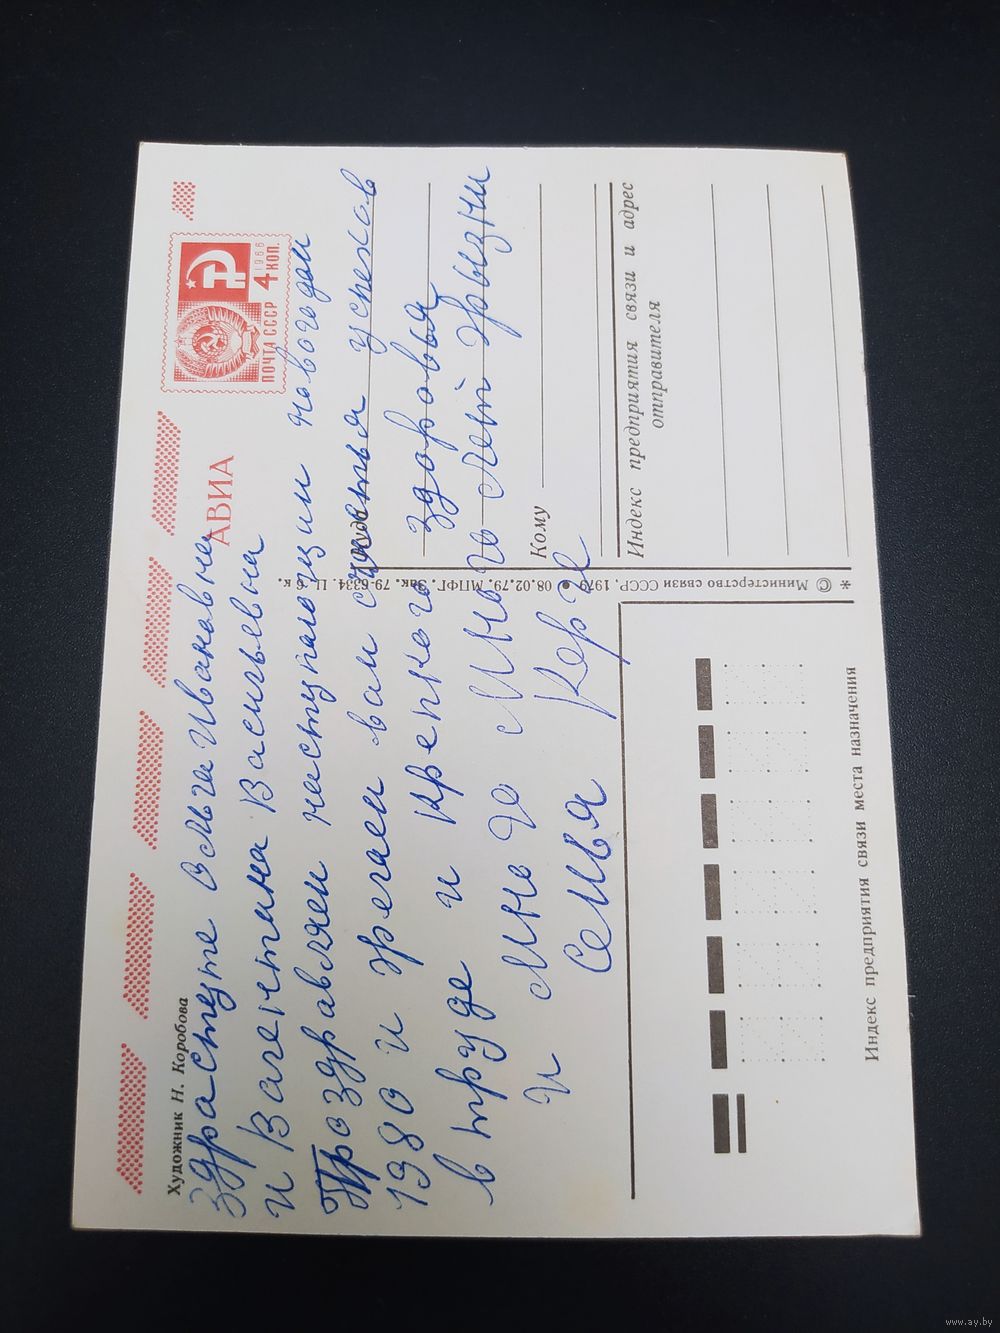 Художник Н. Коробова
АВИА
ПОЧТА СССР 4 КОП.
1966
здрастуте Ольга Ивановна
и Валентина Васильевна
Поздравляем наступающим новогодом
1980 и желаем вам счастья успехов
в труде и крепкого здоровья
и Много Много лет жизни
Семья
Куда
Кому
Индекс предприятия связи и адрес
отправителя
© Министерство связи СССР, 1979 08.02.79. МПФГ. Зак. 79-6334. Ц. 6 к.
*
Индекс предприятия связи места назначения
www.ay.by